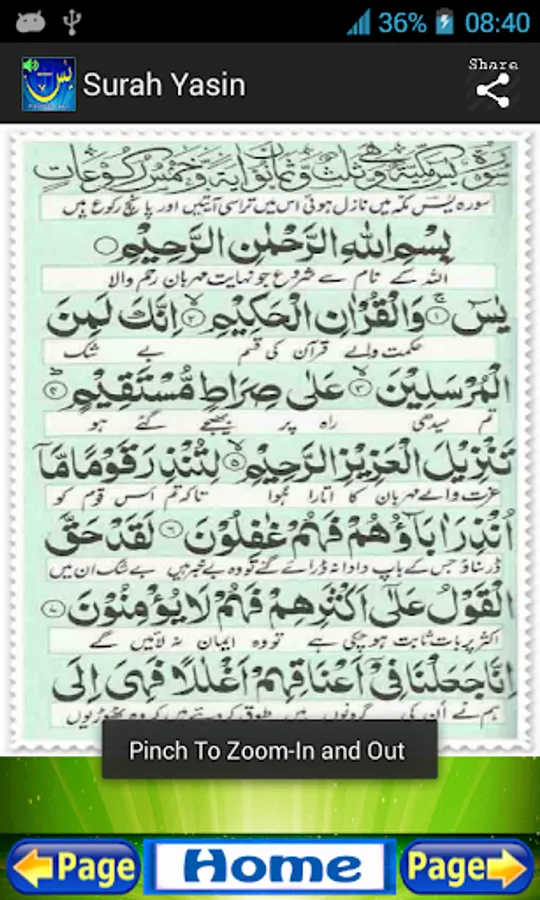 36% 08:40
Surah Yasin
Share
سورہ یٰسٓ مکہ میں نازل ہوئی اس میں تراسی آیتیں اور پانچ رکوع ہیں
بِسْمِ اللهِ الرَّحْمٰنِ الرَّحِيْمِ
اللہ کے نام سے شروع جو نہایت مہربان رحم والا
يٰسٓ ۚ ﴿۱﴾ وَالْقُرْاٰنِ الْحَكِيْمِ ۙ ﴿۲﴾ اِنَّكَ لَمِنَ
حکمت والے قرآن کی قسم بے شک
الْمُرْسَلِيْنَ ۙ ﴿۳﴾ عَلٰى صِرَاطٍ مُّسْتَقِيْمٍ ؕ ﴿۴﴾
تم سیدھی راہ پر بھیجے گئے ہو
تَنْزِيْلَ الْعَزِيْزِ الرَّحِيْمِ ۙ ﴿۵﴾ لِتُنْذِرَ قَوْمًا مَّاۤ
عزت والے مہربان کا اتارا ہوا تاکہ تم اس قوم کو
اُنْذِرَ اٰبَآؤُهُمْ فَهُمْ غٰفِلُوْنَ ﴿۶﴾ لَقَدْ حَقَّ
ڈر سناؤ جس کے باپ دادا نہ ڈرائے گئے تو وہ بے خبر ہیں بے شک ان میں
الْقَوْلُ عَلٰۤى اَكْثَرِهِمْ فَهُمْ لَا يُؤْمِنُوْنَ ﴿۷﴾
اکثر پر بات ثابت ہو چکی ہے تو وہ ایمان نہ لائیں گے
اِنَّا جَعَلْنَا فِيْۤ اَعْنَاقِهِمْ اَغْلٰلًا فَهِيَ اِلَى
ہم نے ان کی گردنوں میں طوق کر دیئے ہیں کہ وہ ٹھوڑیوں
Pinch To Zoom-In and Out
Page Home Page